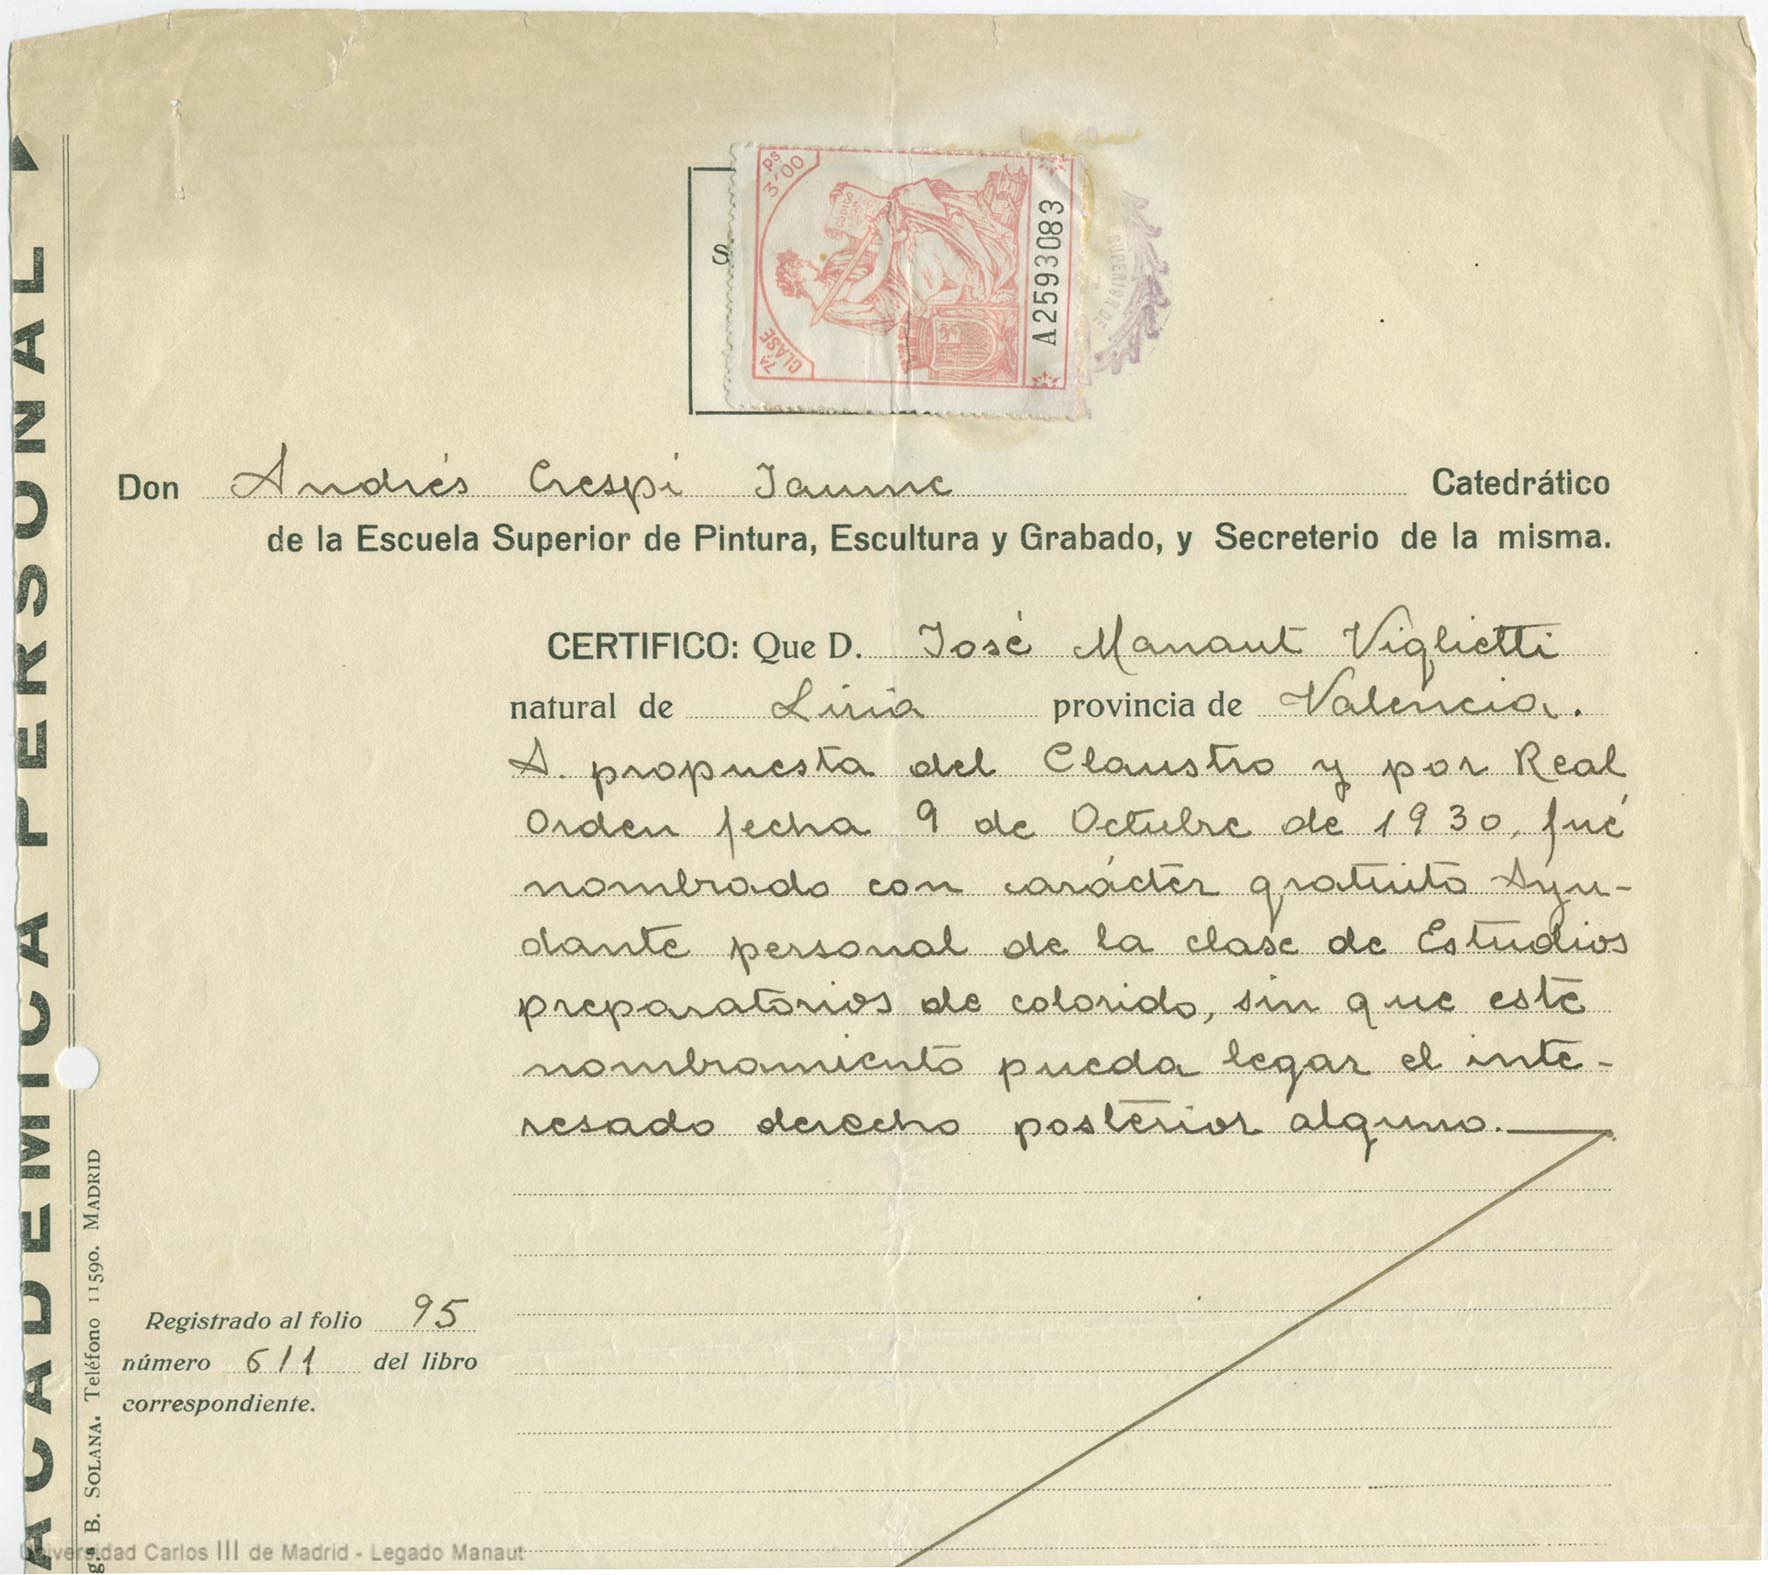 ACADEMICA PERSONAL
gª B. SOLANA. Teléfono 11590. MADRID
ps
3'00
7ª
CLASE
A2593083
S.
SUPERIOR DE
Don Andrés Crespi Jaume Catedrático
de la Escuela Superior de Pintura, Escultura y Grabado, y Secreterio de la misma.
CERTIFICO: Que D. José Manaut Viglietti
natural de Liria provincia de Valencia.
A. propuesta del Claustro y por Real
Orden fecha 9 de Octubre de 1930, fué
nombrado con carácter gratuito Ayu-
dante personal de la clase de Estudios
preparatorios de colorido, sin que este
nombramiento pueda legar el inte-
resado derecho posterior alguno.
Registrado al folio 95
número 611 del libro
correspondiente.
Universidad Carlos III de Madrid - Legado Manaut